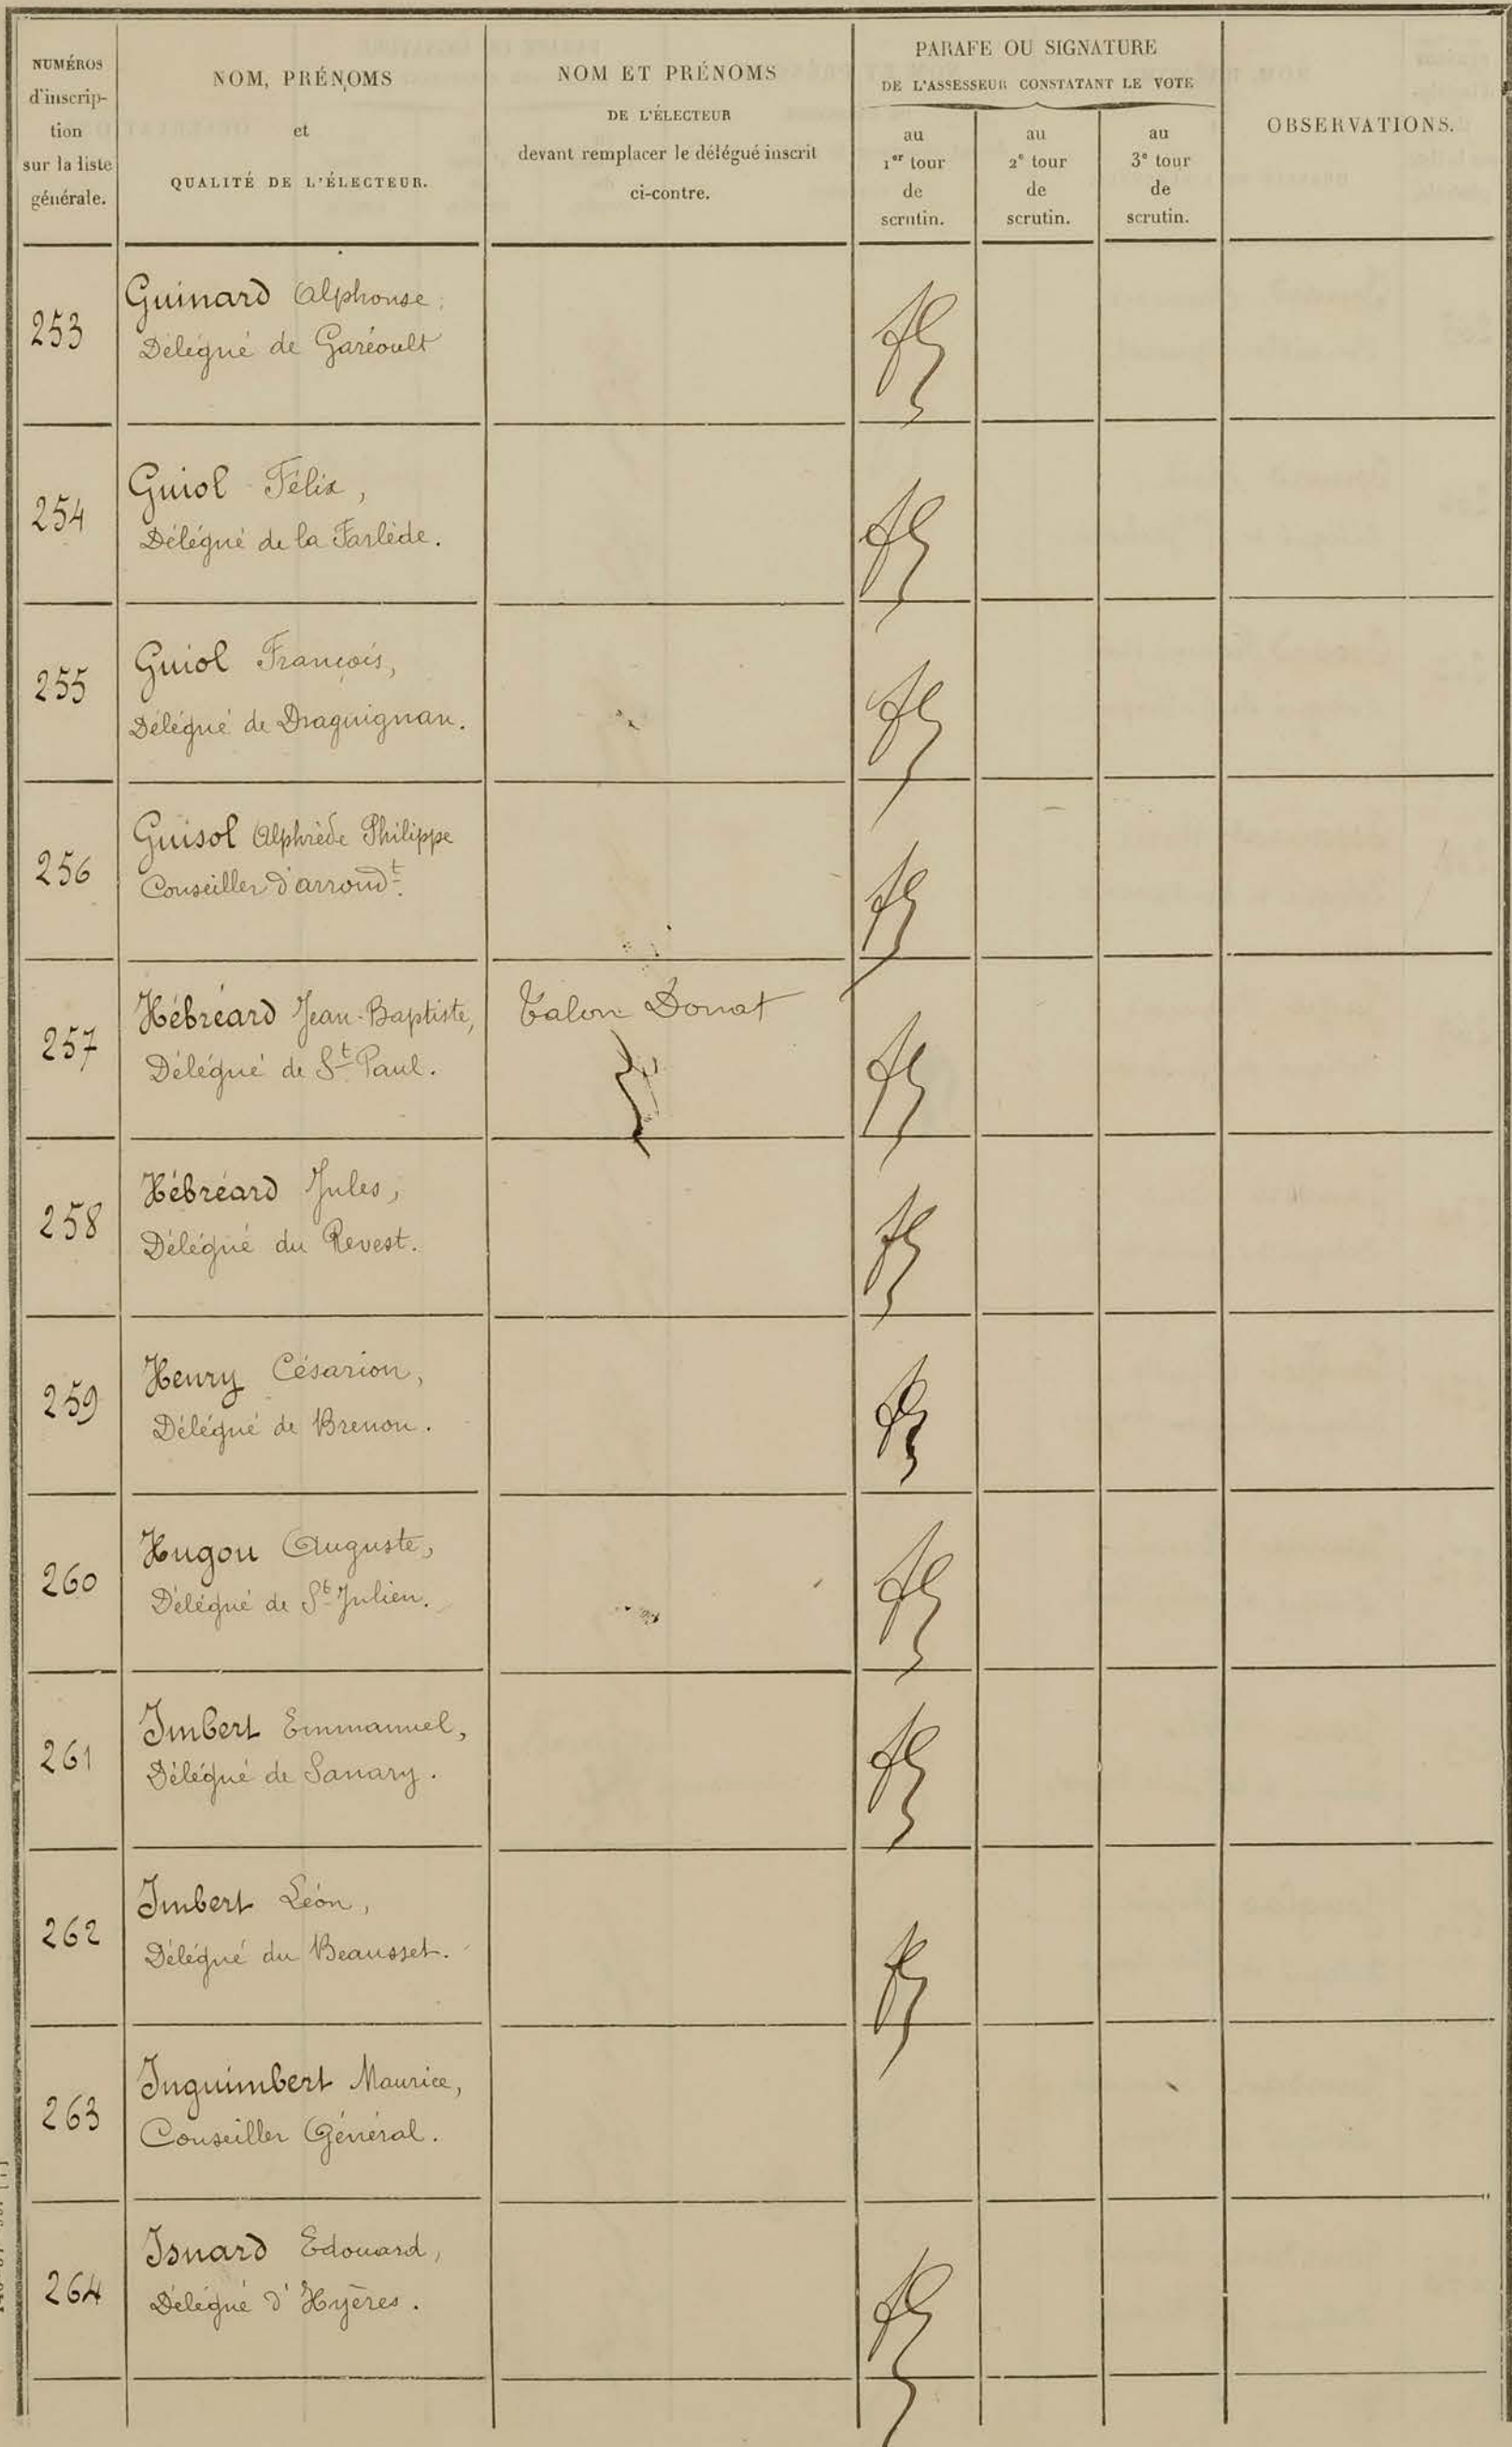 NUMÉROS
d'inscrip-
tion
sur la liste
générale.
NOM, PRÉNOMS
et
QUALITÉ DE L'ÉLECTEUR.
NOM ET PRÉNOMS
DE L'ÉLECTEUR
devant remplacer le délégué inscrit
ci-contre.
PARAFE OU SIGNATURE
DE L'ASSESSEUR CONSTATANT LE VOTE
au
1er tour
de
scrutin.
au
2e tour
de
scrutin.
au
3e tour
de
scrutin.
OBSERVATIONS.
253
Guinard Alphonse,
Délégué de Garéoult
254
Guiol Félix,
Délégué de la Farlède.
255
Guiol François,
Délégué de Draguignan.
256
Guisol Alphrède Philippe
Conseiller d'arrondt.
257
Hébréard Jean-Baptiste,
Délégué de St Paul.
Talon Donat
258
Hébréard Jules,
Délégué du Revest.
259
Henry Césarion,
Délégué de Brenon.
260
Hugou Auguste,
Délégué de St Julien.
261
Imbert Emmanuel,
Délégué de Sanary.
262
Imbert Léon,
Délégué du Beausset.
263
Inguimbert Maurice,
Conseiller Général.
264
Isnard Edouard,
Délégué d'Hyères.